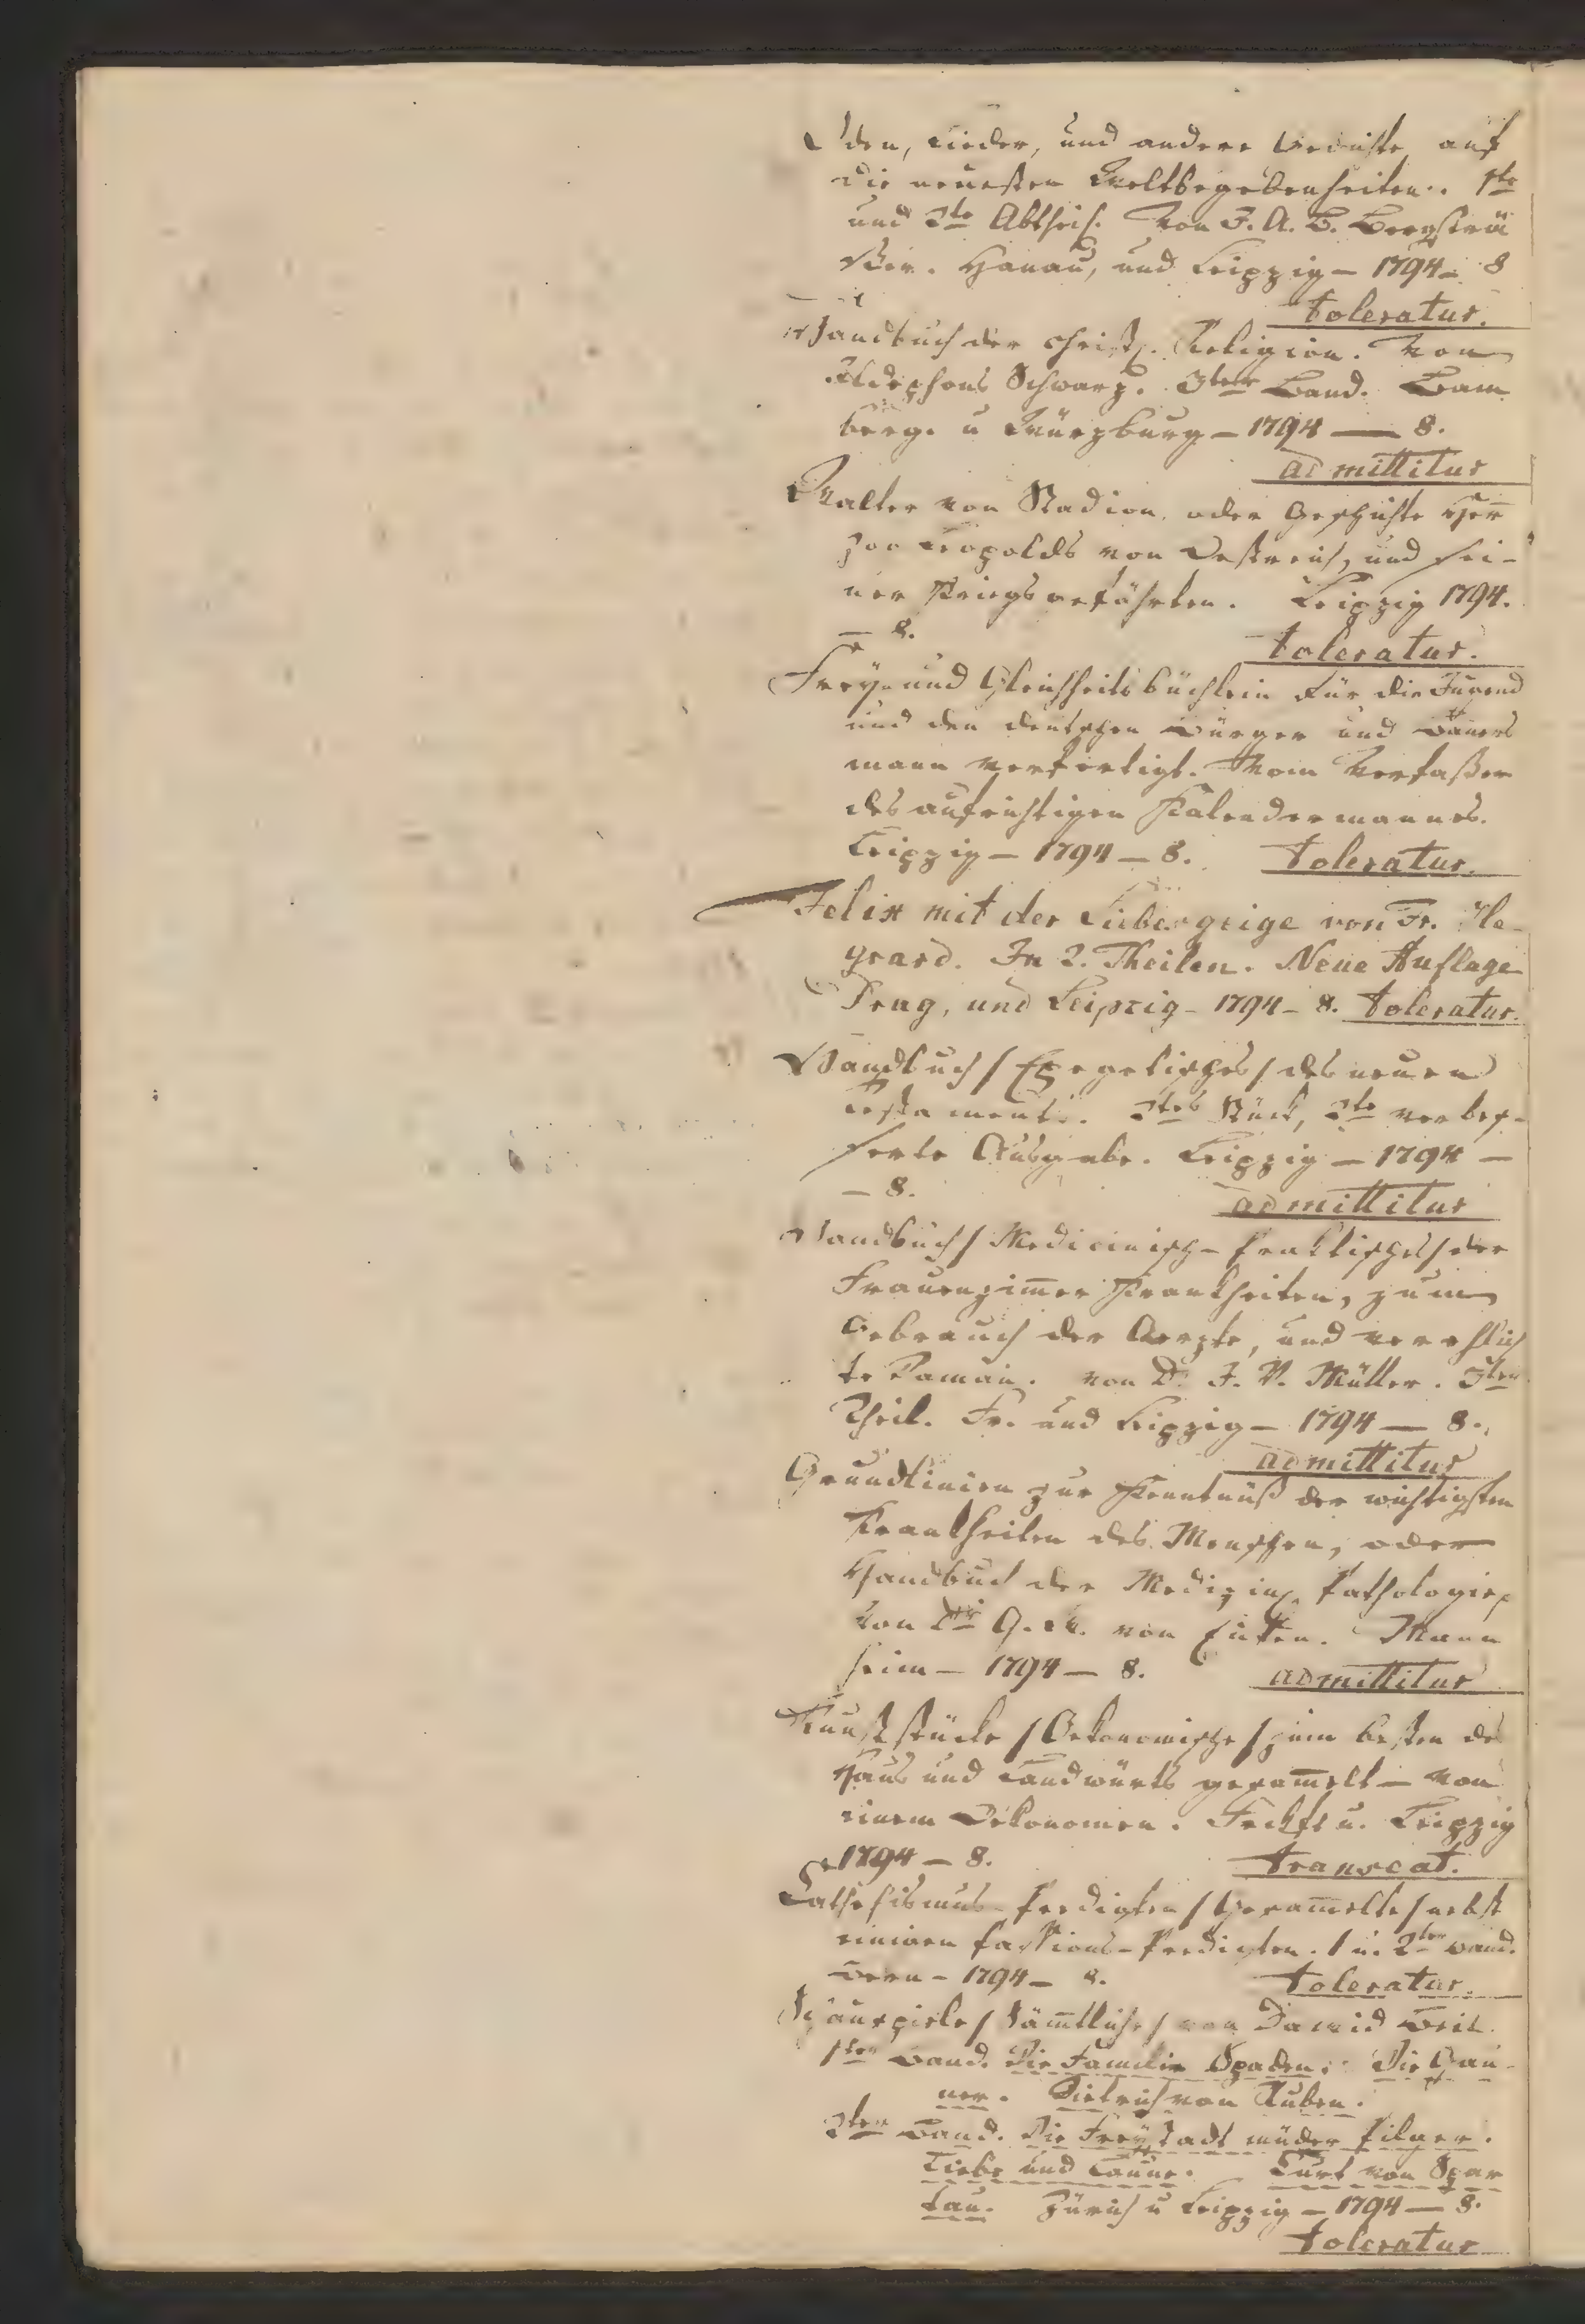 Oden, Lieder, und andere Gedichte auf
die neuesten Weltbegebenheiten. 1te
und 2te Abtheil. Von J. A. B. Bergsträ
ßer. Hanau, und Leipzig – 1794 – 8
toleratur.
Handbuch der christl. Religion. Von
Ildephons Schwarz. 3ter Band. Bam
berg. u Würzburg – 1794 — 8.
admittitur
Walter von Stadion, oder Geschichte Her
zog Leopolds von Oestreich, und sei-
ner Kriegsgefährten. Leipzig 1794.
– 8.
toleratur.
Frey- und Gleichheitsbüchlein für die Jugend
und den deutschen Bürger und Bauers
mann verfertigt. Vom Verfaßer
des aufrichtigen Kalendermannes.
Leipzig – 1794 – 8. toleratur.
Felix mit der Liebesgeige von Fr. He-
grard. In 2. Theilen. Neue Auflage
Prag, und Leipzig – 1794 – 8. toleratur.
Handbuch / Exegetisches / des neuen
Testaments. 2tes Stück, 2te verbes-
serte Ausgabe. Leipzig – 1794 –
– 8.
admittitur
Handbuch / Medicinisch-praktisches / der
Frauenzimer Krankheiten, zum
Gebrauch der Aerzte, und verehlich
te Damen. von D. J. V. Müller. 3ten
Theil. Fr. und Leipzig – 1794 — 8.
admittitur
Grundlinien zur Kenntnuß der wichtigsten
Krankheiten des Menschen, oder
Handbuch der Medizin. Pathologie
von G. von Eicken. Mann
heim – 1794 – 8. admittitur
Kunststücke / Oekonomische / zum besten des
Haus und Landwürts gesamelt – von
einem Oekonomen. Frckft u. Leipzig
1794 – 8.
transeat.
Cathechismus-Predigten / Gesamelte / nebst
einigen Passions-Predigten. 1 u. 2ter Band.
Bern – 1794 – 8. toleratur.
Schauspiele / Sämtliche / von David Beil.
1ter Band. Die Familie Spaden. Die Gau-
ner. Dietrich von Ruben.
2ter Band. Die Freystadt müder Pilger.
Liebe und Laune. Curt von Spar
tau. Zürich u Leipzig – 1794 – 8.
toleratur